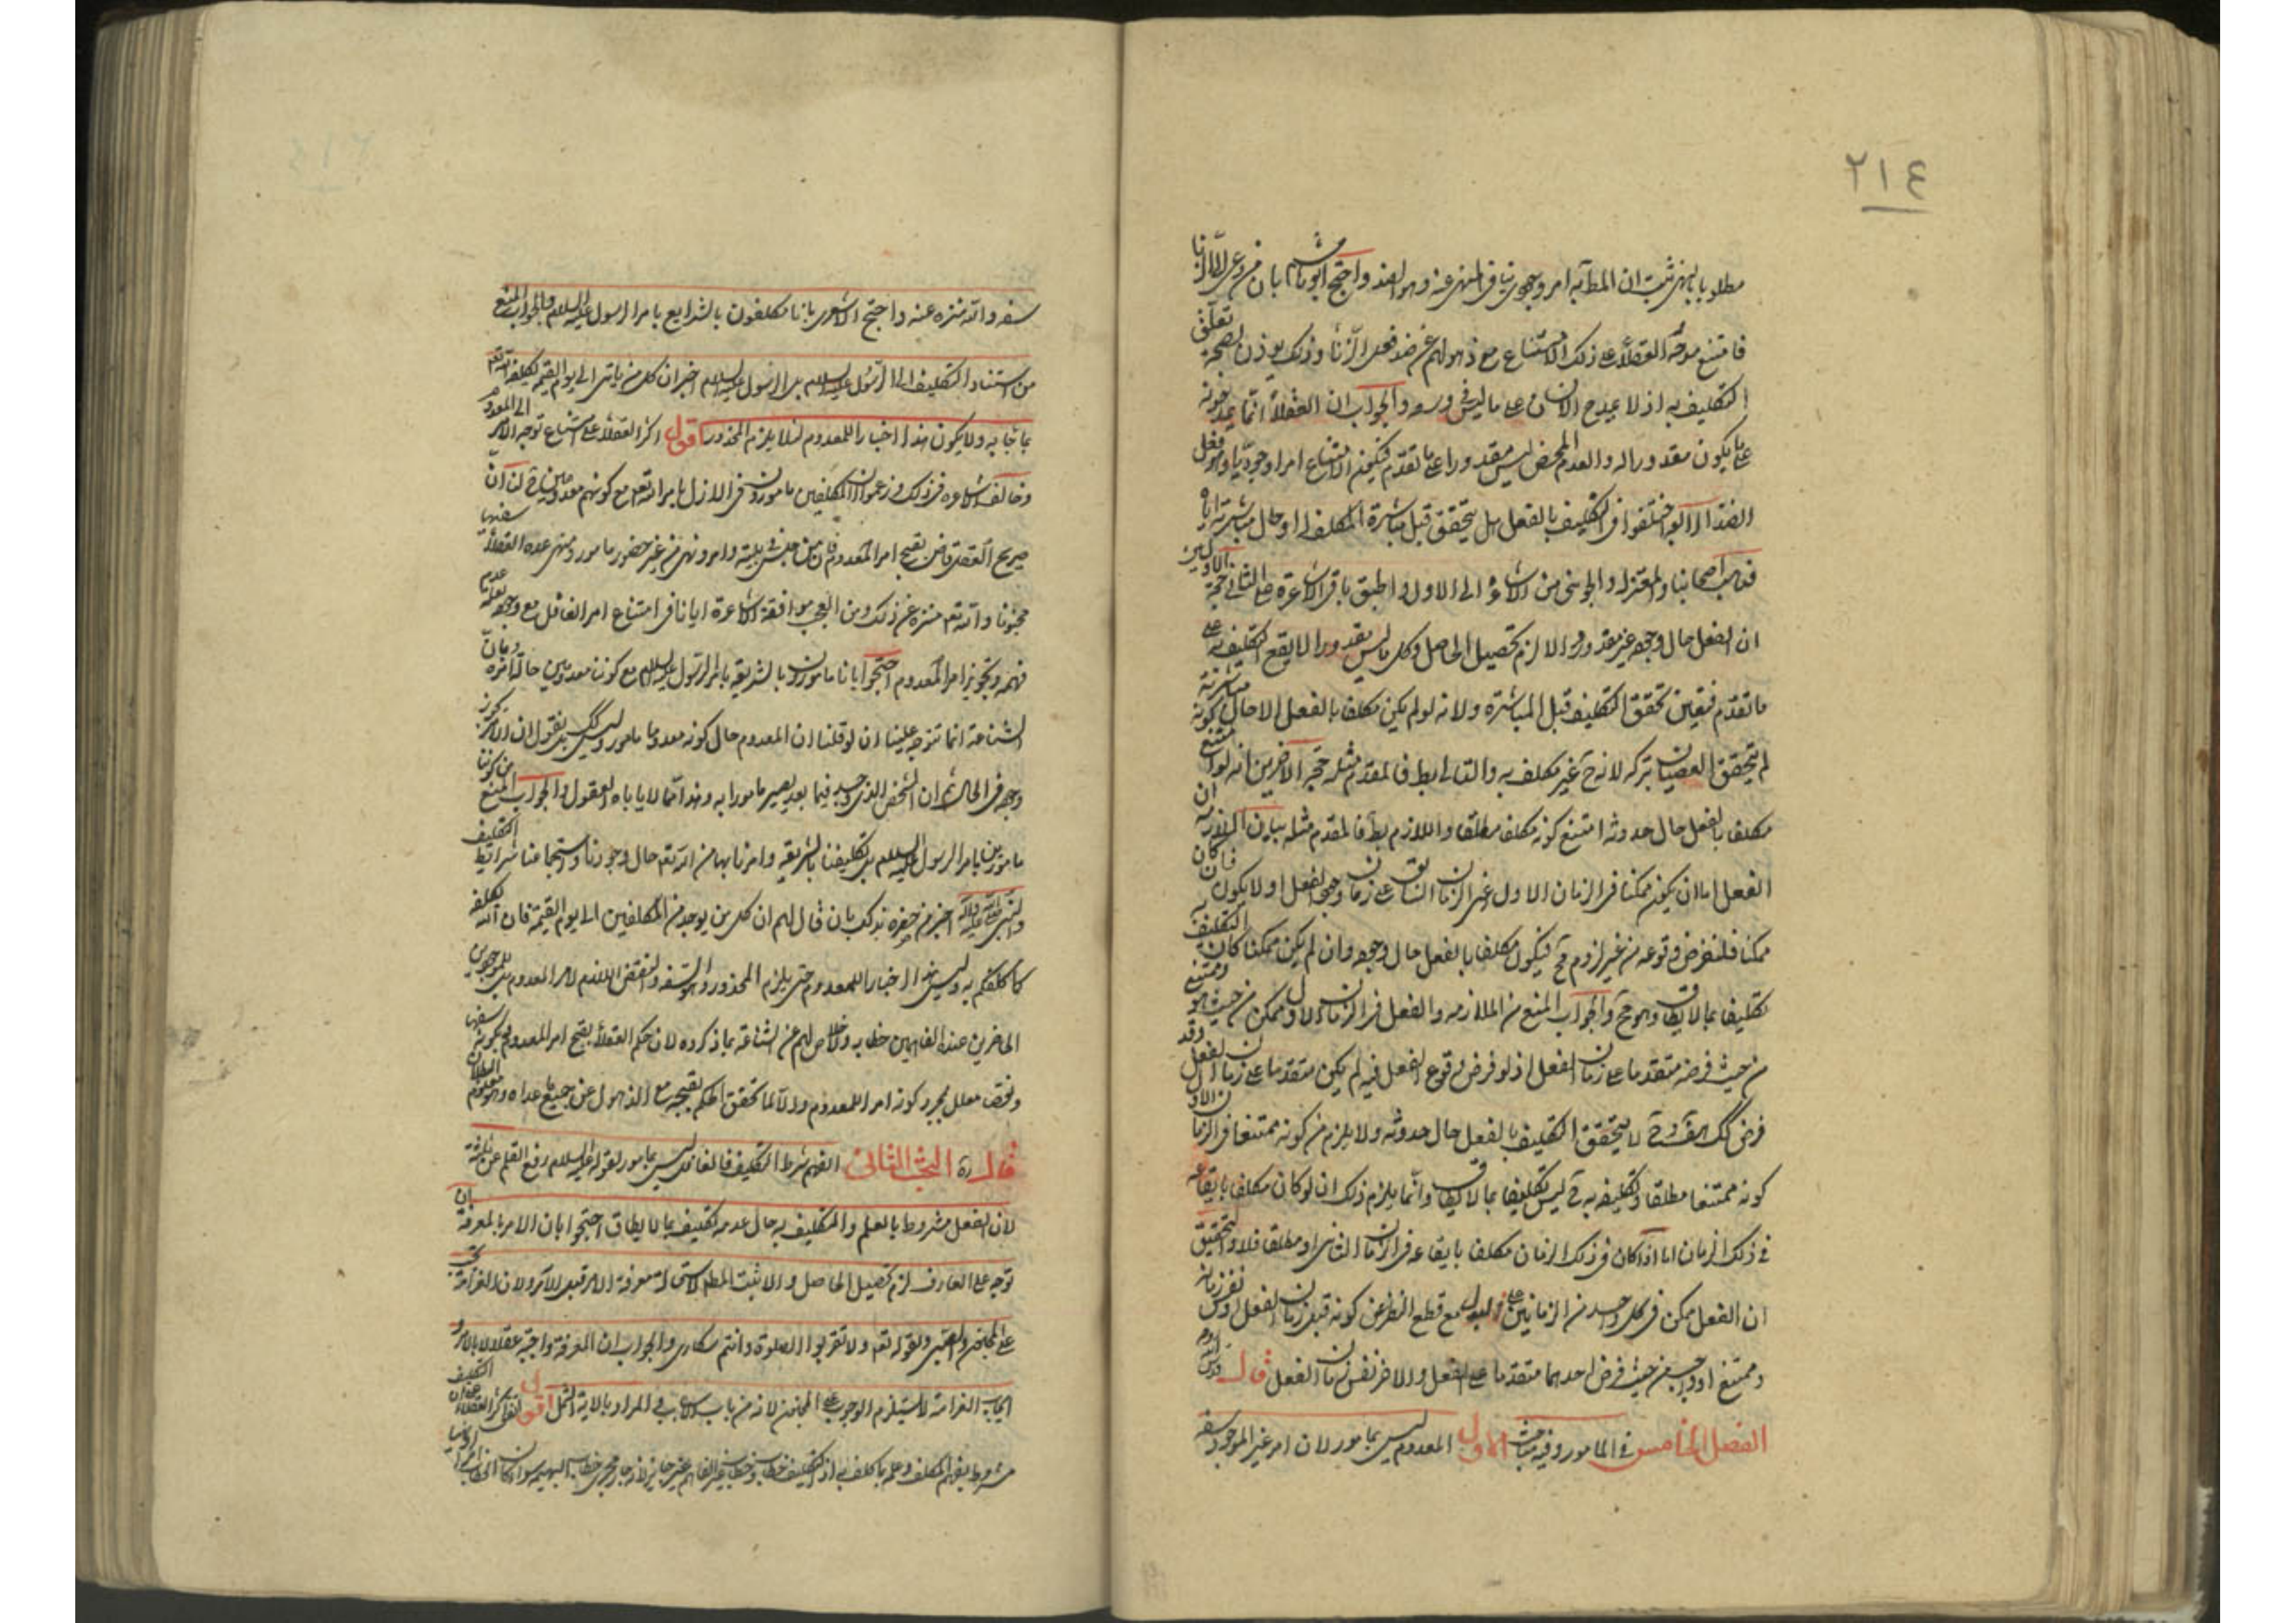 ٢١٤
مطلوبا بالنهى ثبت ان المط به امر وجودى ينافى المنهى عنه وهو الضد واحتج ابوهاشم بان من دعى الى الزنا
فامتنع مدحه العقلاء على ذلك الامتناع مع ذهولهم عن ضد فعل الزنا وذلك يوذن بصحة تعلق
التكليف به اذ لا يمدح الانسان على ما ليس فى وسعه والجواب ان العقلاء انما يمدحونه
على ما يكون مقدورا له والعدم المحض ليس مقدورا على ما تقدم فيكون الامتناع امرا وجوديا وهو فعل
الضد اختلفوا فى التكليف بالفعل هل يتحقق قبل مباشرة المكلف او حال مباشرته اياه
فذهب اصحابنا والمعتزلة والجوينى من الاشاعرة الى الاول واطبق باقى الاشاعرة على الثانى حجة الاولين
ان الفعل حال وجوده غير مقدور والا لزم تحصيل الحاصل وكل ما ليس مقدورا لا يقع التكليف به على
ما تقدم فتعين تحقق التكليف قبل المباشرة ولانه لو لم يكن مكلفا بالفعل الا حال مباشرته
لم يتحقق العصيان بتركه لانه ح غير مكلف به والتالى بط فالمقدم مثله حجة الاخرين انه لو امتنع كونه
مكلفا بالفعل حال حدوثه امتنع كونه مكلفا مطلقا واللازم بط فالمقدم مثله بيان الملازمة ان
الفعل اما ان يكون ممكنا فى الزمان الاول اعنى الزمان السابق على زمان وجود الفعل او لا يكون فان كان
ممكنا فلنفرض وقوعه من غير لزوم مح فيكون مكلفا بالفعل حال وجوده وان لم يكن ممكنا كان التكليف به
تكليفا بما لا يطاق وهو مح والجواب المنع من الملازمة والفعل فى الزمان الاول ممكن من حيث هو وممتنع
من حيث فرضه متقدما على زمان الفعل اذ لو فرض وقوع الفعل فيه لم يكن متقدما على زمان الفعل وقد
فرض كك هف وح لا يتحقق التكليف بالفعل حال حدوثه ولا يلزم من كونه ممتنعا فى الزمان الاول
كونه ممتنعا مطلقا وتكليفه به ح ليس تكليفا بما لا يطاق وانما يلزم ذلك ان لو كان مكلفا بايقاعه
فى ذلك الزمان اما اذا كان فى ذلك الزمان مكلفا بايقاعه فى الزمان الثانى او مطلقا فلا والتحقيق
ان الفعل ممكن فى كل واحد من الزمانين على البدل مع قطع النظر عن كونه قبل زمان الفعل او نفس زمانه
وممتنع او واجب من حيث فرض احدهما متقدما على الفعل والاخر نفس زمان الفعل قال قدس الله روحه
الفصل الخامس فى المامور وفيه مباحث الاول المعدوم ليس بمامور لان امر غير الموجود سفه
سفه والله منزه عنه واحتج الاشعرى بانا مكلفون بالشرايع بامر الرسول عليه السلام والجواب المنع
من استناد التكليف الى الرسول عليه السلام بل الرسول عليه السلام اخبر ان كل من ياتى الى يوم القيمة يكلفه الله تع
بما جا به ولا يكون هذا اخبارا للمعدوم لئلا يلزم المحذور اقول اكثر العقلاء على امتناع توجه الامر الى المعدوم
وخالف الاشاعرة فى ذلك وزعموا ان المكلفين مامورون فى الازل بامر الله تع مع كونهم معدومين ح لنا ان
صريح العقل قاض بقبح امر المعدوم فان من جلس فى بيته وامر ونهى من غير حضور مامور ومنهى عده العقلاء سفيها
مجنونا والله تع منزه عن ذلك ومن العجب موافقة الاشاعرة ايانا فى امتناع امر الغافل مع وجوده لعدم
فهمه وتجويز امر المعدوم احتجوا بانا مامورون بالشريعة بامر الرسول عليه السلام مع كوننا معدومين حال امره وبان
الشناعة انما تتوجه علينا ان لو قلنا ان المعدوم حال كونه معدوما مامور وليس كك بل نقول ان الامر
وجد فى الحال ثم ان الشخص الذى وجد فيما بعد يصير مامورا به وهذا مما لا ياباه العقول والجواب المنع من كوننا
مامورين بامر الرسول عليه السلام بل تكليفنا بالشريعة وامرنا بها من الله تع حال وجودنا واستجماعنا شرايط التكليف
والنبى صلى الله عليه وآله اخبر من حضره بذلك بان قال لهم ان كل من يوجد من المكلفين الى يوم القيمة فان الله يكلفه
كما كلفكم به وليس هذا اخبارا للمعدوم حتى يلزم المحذور وهو السفه والنقض اللازم لامر المعدوم بل للموجودين
الحاضرين عنده الفاهمين خطابه ولا خلاص لهم عن الشناعة بما ذكروه لان حكم العقلاء بقبح امر المعدوم بكونه سفها
ونقص معلل بمجرد كونه امرا للمعدوم والا لما تحقق الحكم بقبحه مع الذهول عن جميع ما عداه وهو معلوم البطلان
قال ره البحث الثانى الفهم شرط التكليف فالغافل ليس بمامور لقوله عليه السلام رفع القلم عن ثلثة
لان الفعل مشروط بالعلم والتكليف به حال عدمه تكليف بما لا يطاق احتجوا بان الامر بالمعرفة ان
توجه على العارف لزم تحصيل الحاصل والا ثبت المط لاستحالة معرفة الامر قبل الآمر ولان الغرامة تجب
على المجنون والصبى ولقوله تع ولا تقربوا الصلوة وانتم سكارى والجواب ان المعرفة واجبة عقلا لا بالامر و
ايجاب الغرامة لا يستلزم الوجوب على المجنون لانه من باب الاسباب والمراد بالاية الثمل اقول اتفق اكثر العقلاء على ان التكليف
مشروط بفهم المكلف وعلمه بما كلف به اذ التكليف خطاب وخطاب غير الفاهم غير جايز لانه جار مجرى خطاب البهيمة سواء كان الخطاب امرا او نهيا